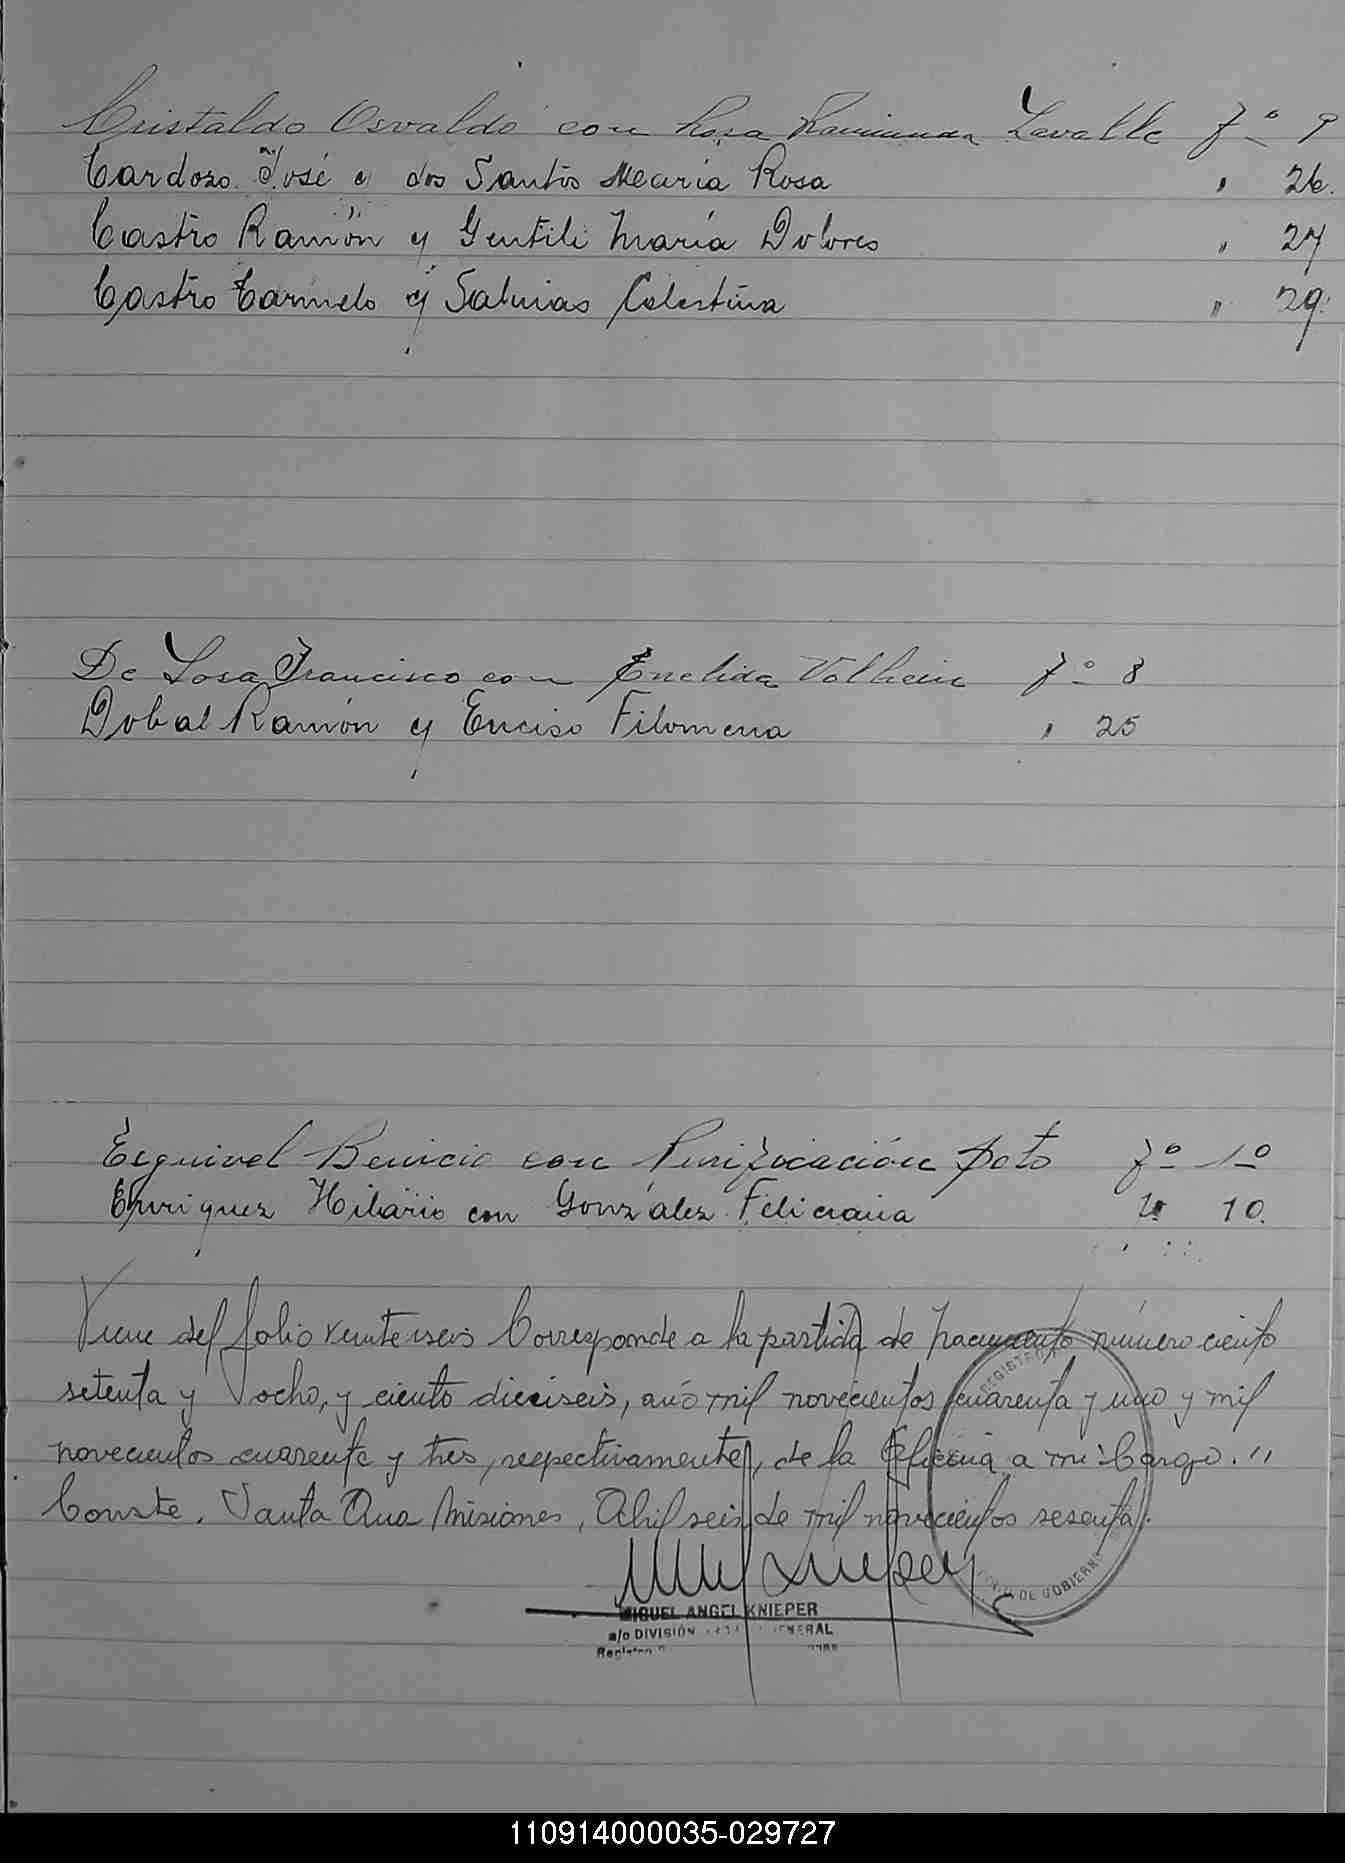 Cristaldo Osvaldo con Rosa Lavalle fº 9
Cardozo José y dos Santos Maria Rosa " 26.
Castro Ramón y Gentili María Dolores " 27
Castro Carmelo y Salinas Celestina " 29.
De Sosa Francisco con Enelida fº 8
Dobal Ramón y Enciso Filomena " 25
Esquivel Benicio con Purificación Soto fº 10
Enriquez Hilario con González Feliciana " 10.
Viene del folio veinteiseis Corresponde a la partida de nacimiento número ciento
setenta y ocho, y ciento dieciseis, año mil novecientos cuarenta y uno y mil
novecientos cuarenta y tres, respectivamente, de la Oficina a mi Cargo.
Conste. Santa Ana Misiones, Abril seis de mil novecientos sesenta.
MIGUEL ANGEL KNIEPER
a/c DIVISIÓN GENERAL
REGISTRO
DE GOBIERNO
110914000035-029727